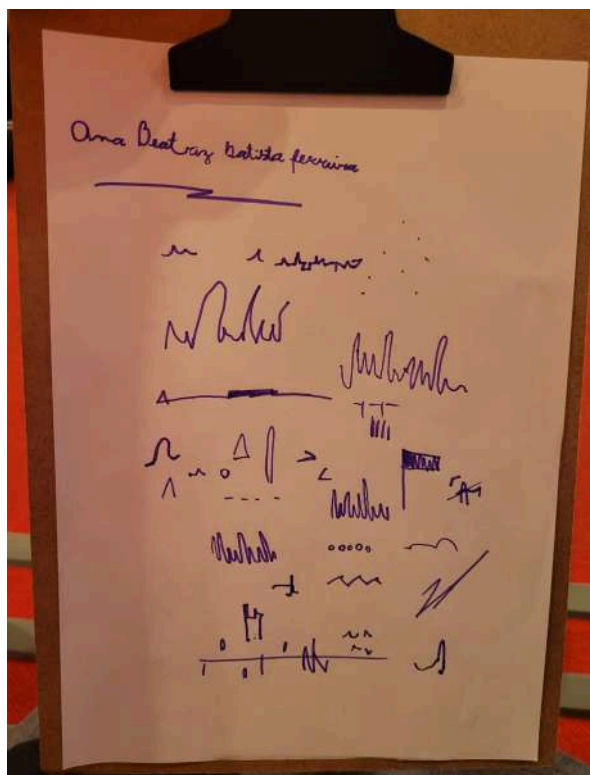 Ana Beatriz batista ferreira